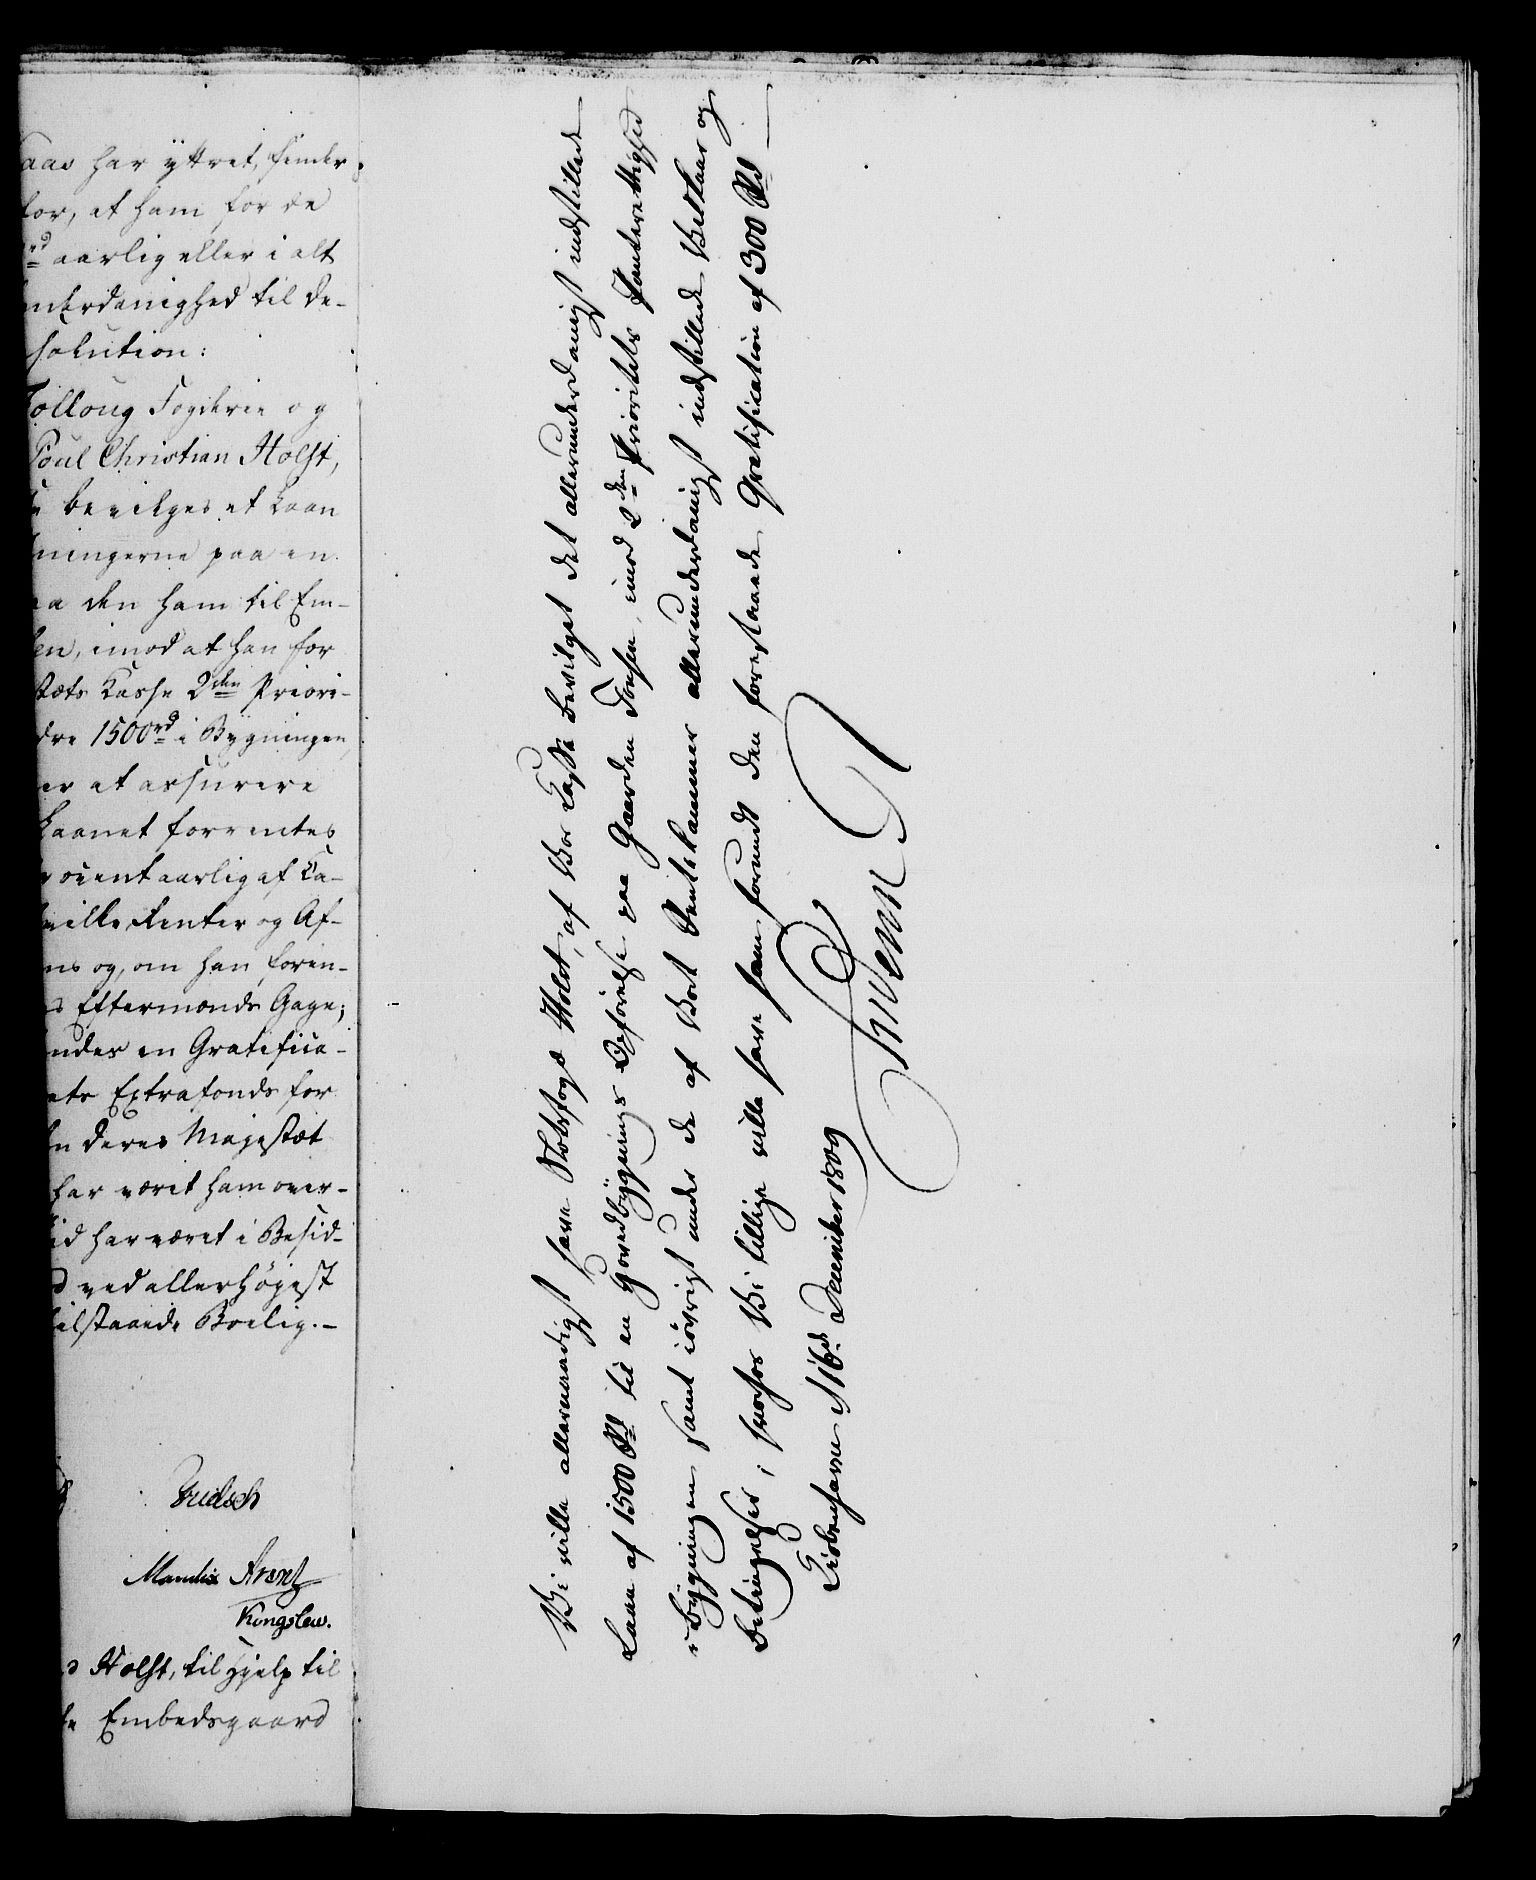 aas har yttret, henter
for, at ham for de
rd aarlig eller i alt
underdanighed til de-
solution:
Folloug Fogderie og
Poul Christian Holst,
bevilges et Laan
ningerne paa en
den ham til Em-
en, imod at han for
stæts Kasse 2den Priori-
dre 1500rd i Bygningen,
er at assurere
Laanet forrentes
rocent aarlig af Ca-
hvilke Renter og Af-
ns og, om han forin-
Eftermonds Gage;
ndes en Gratifica-
ets Extrafonds for
en deres Majestæt
har været ham over-
tid har været i Besid-
ved allerhøyest
tilstaaede Bolig.-
Mandix Arentz
Kongslew.
Holst, til Hielp til
Embedsgaard
Vi ville allernaadigst have Slotsfogd Holst, af Vor Casse bevilget det allerunderdanigst indstillede
Laan af 1500 Rd til en Hovedbygnings Opførelse paa Gaarden Jonsen, imod 2den Prioritets Panterettighed
i Bygningen samt iøvrigt under de af Vort Rentekammer allerunderdanigst indstillede Vilkaar og
betingelser; hvorhos Vi tillige ville have ham forundt den foreslaaede Gratification af 300 Rd
Kiøbenhavn d 16de December 1809
Friderik R